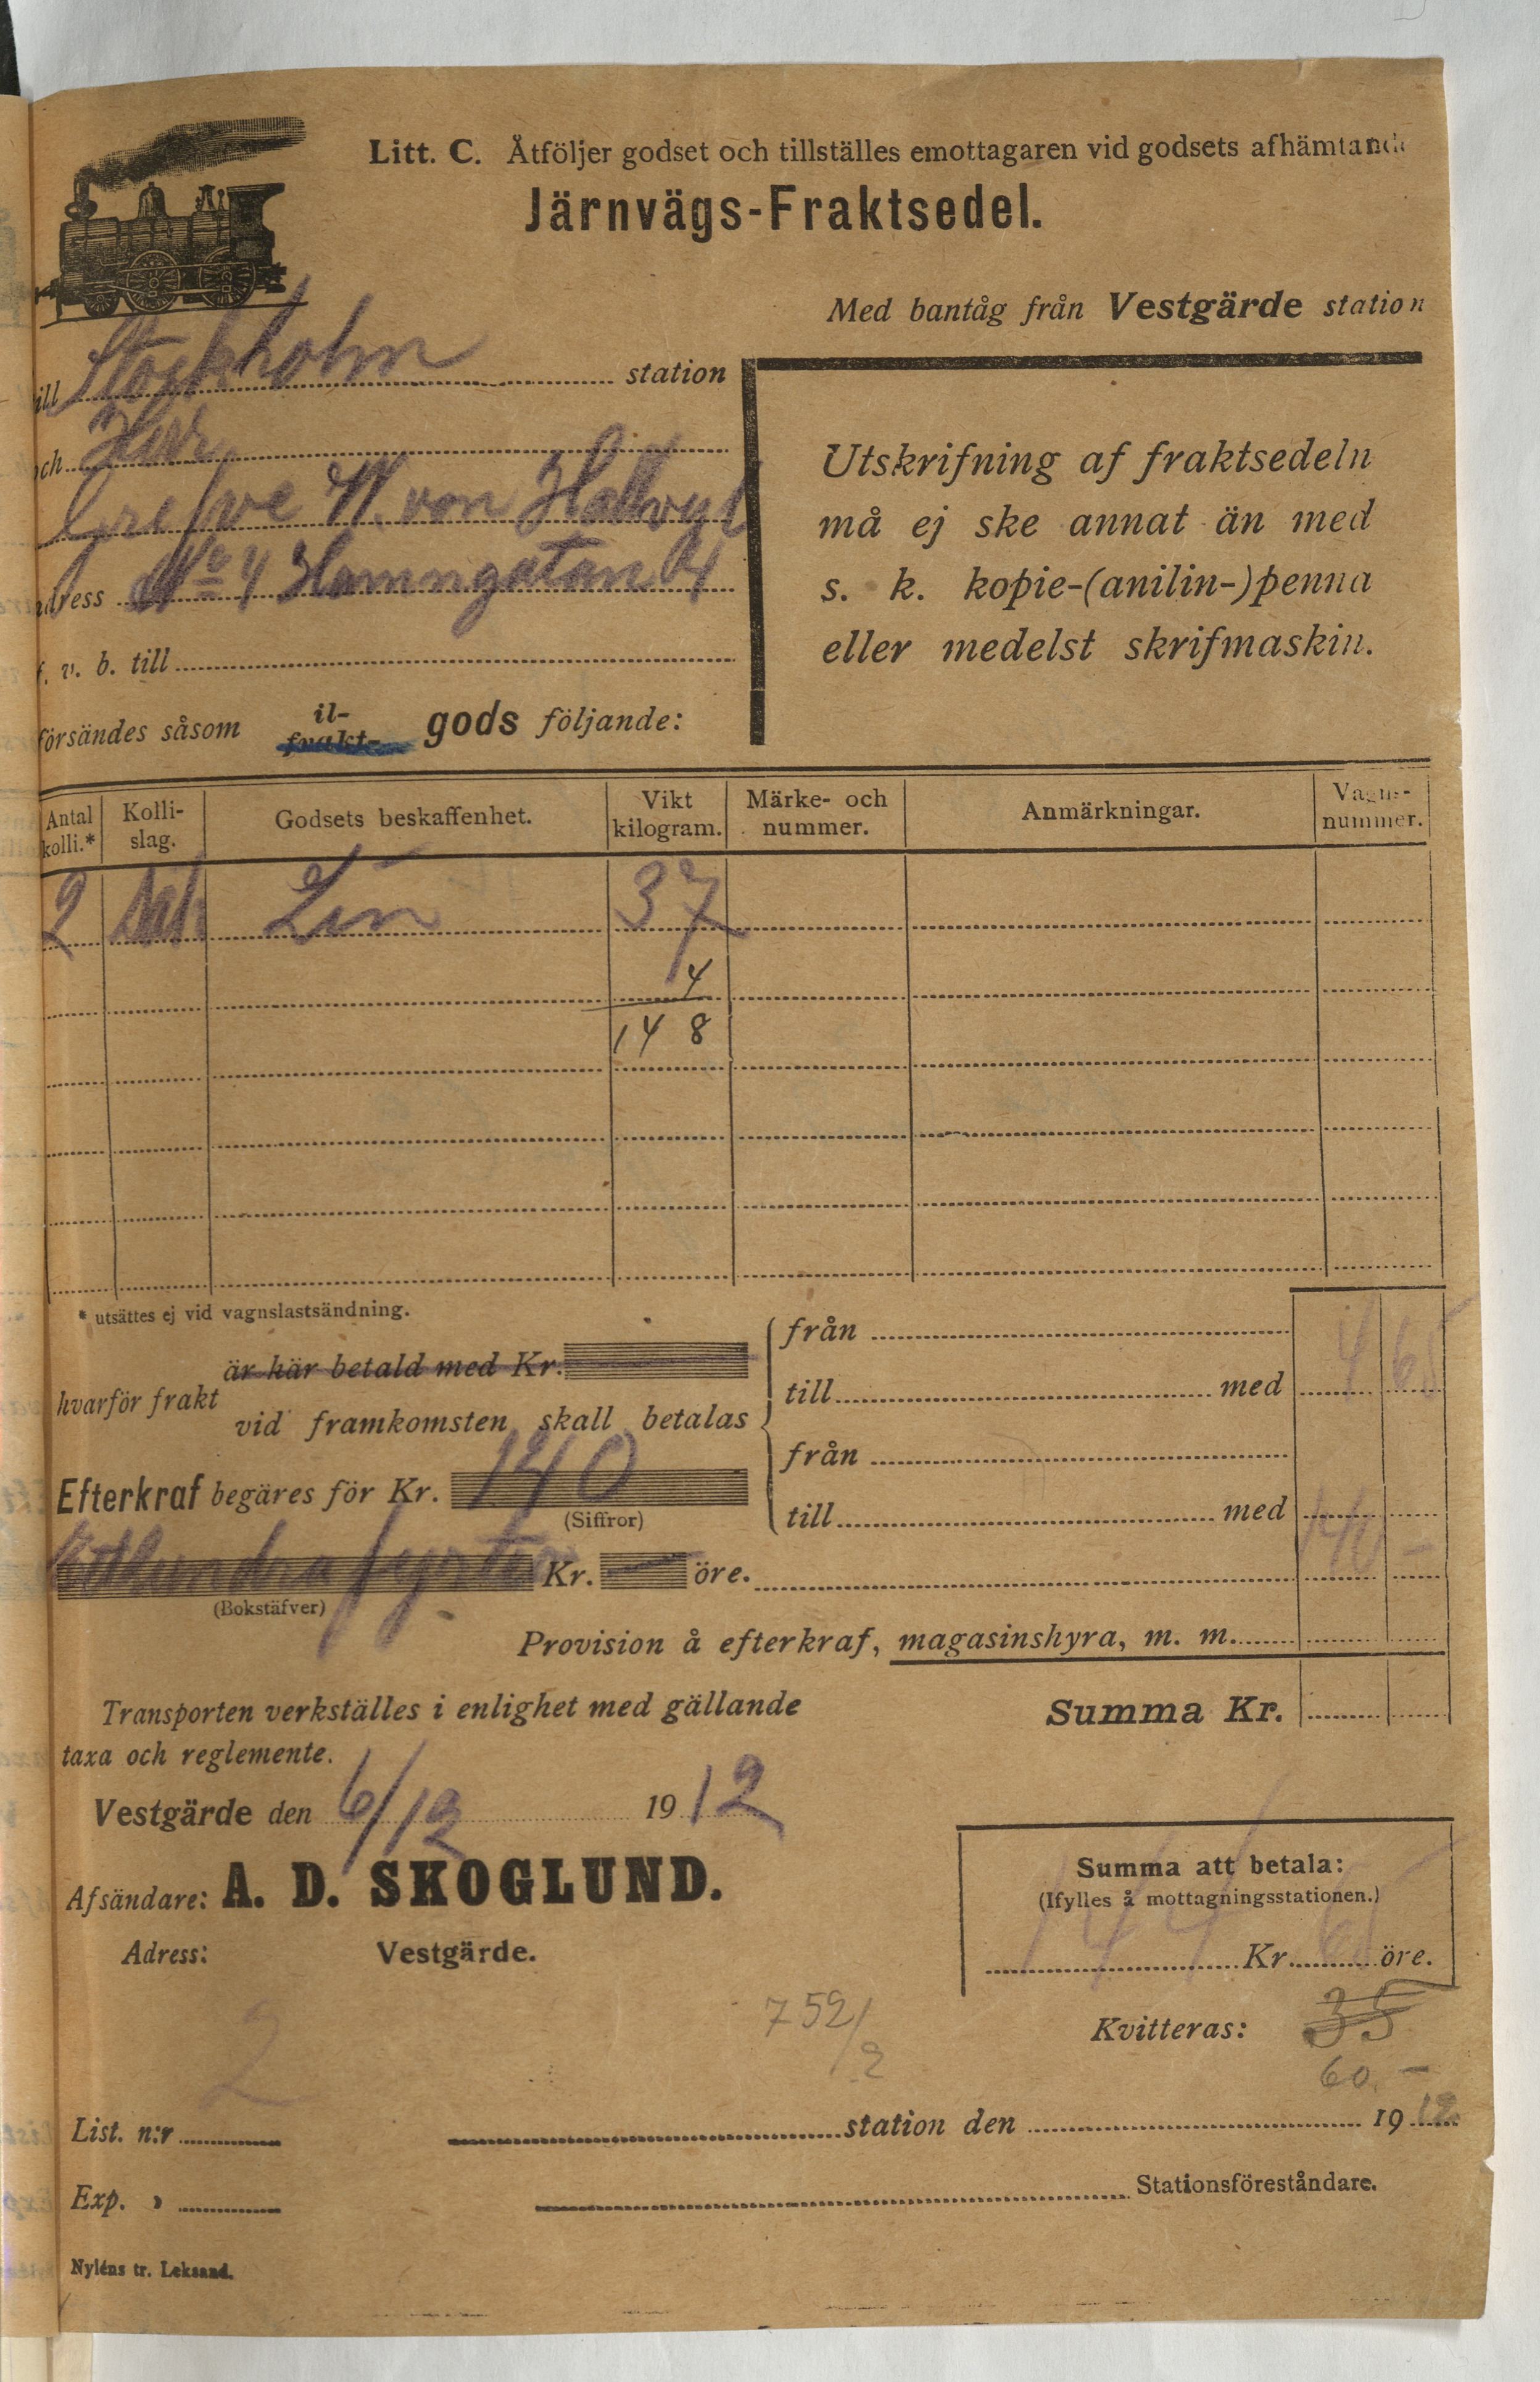 Litt. C. Åtföljer godset och tillställes emottagaren vid godsets afhämtande
Järnvägs-Fraktsedel.
Med bantåg från Vestgärde station
till Stockholm station
och Herr
Grefve W. von Hallwyl
adress No 4 Hamngatan 4
f. v. b. till
försändes såsom il- frakt- gods följande:
Utskrifning af fraktsedeln
må ej ske annat än med
s. k. kopie-(anilin-)penna
eller medelst skrifmaskin.
Antal kolli.* Kolli-slag. Godsets beskaffenhet. Vikt kilogram. Märke- och nummer. Anmärkningar. Vagns-nummer.
2 Säck Lin 37
4
148
* utsättes ej vid vagnslastsändning.
hvarför frakt
är här betald med Kr.
vid framkomsten skall betalas
från
till med 4 65
från
till med
Efterkraf begäres för Kr. 140
(Siffror)
Etthundra fyrtio Kr. — öre. 140 —
(Bokstäfver)
Provision å efterkraf, magasinshyra, m. m.
Summa Kr.
Transporten verkställes i enlighet med gällande
taxa och reglemente.
Vestgärde den 6/12 1912
Afsändare: A. D. SKOGLUND.
Adress: Vestgärde.
Summa att betala:
(Ifylles å mottagningsstationen.)
144 Kr 65 öre.
Kvitteras: 35
60 —
752/2
2
List. n:r
station den 1912
Exp. »
Stationsföreståndare.
Nyléns tr. Leksand.